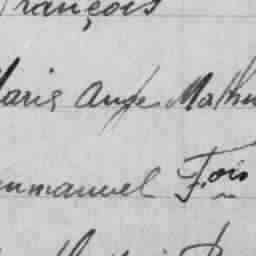 François
Marie Ange Mathu
mmanuel Fois